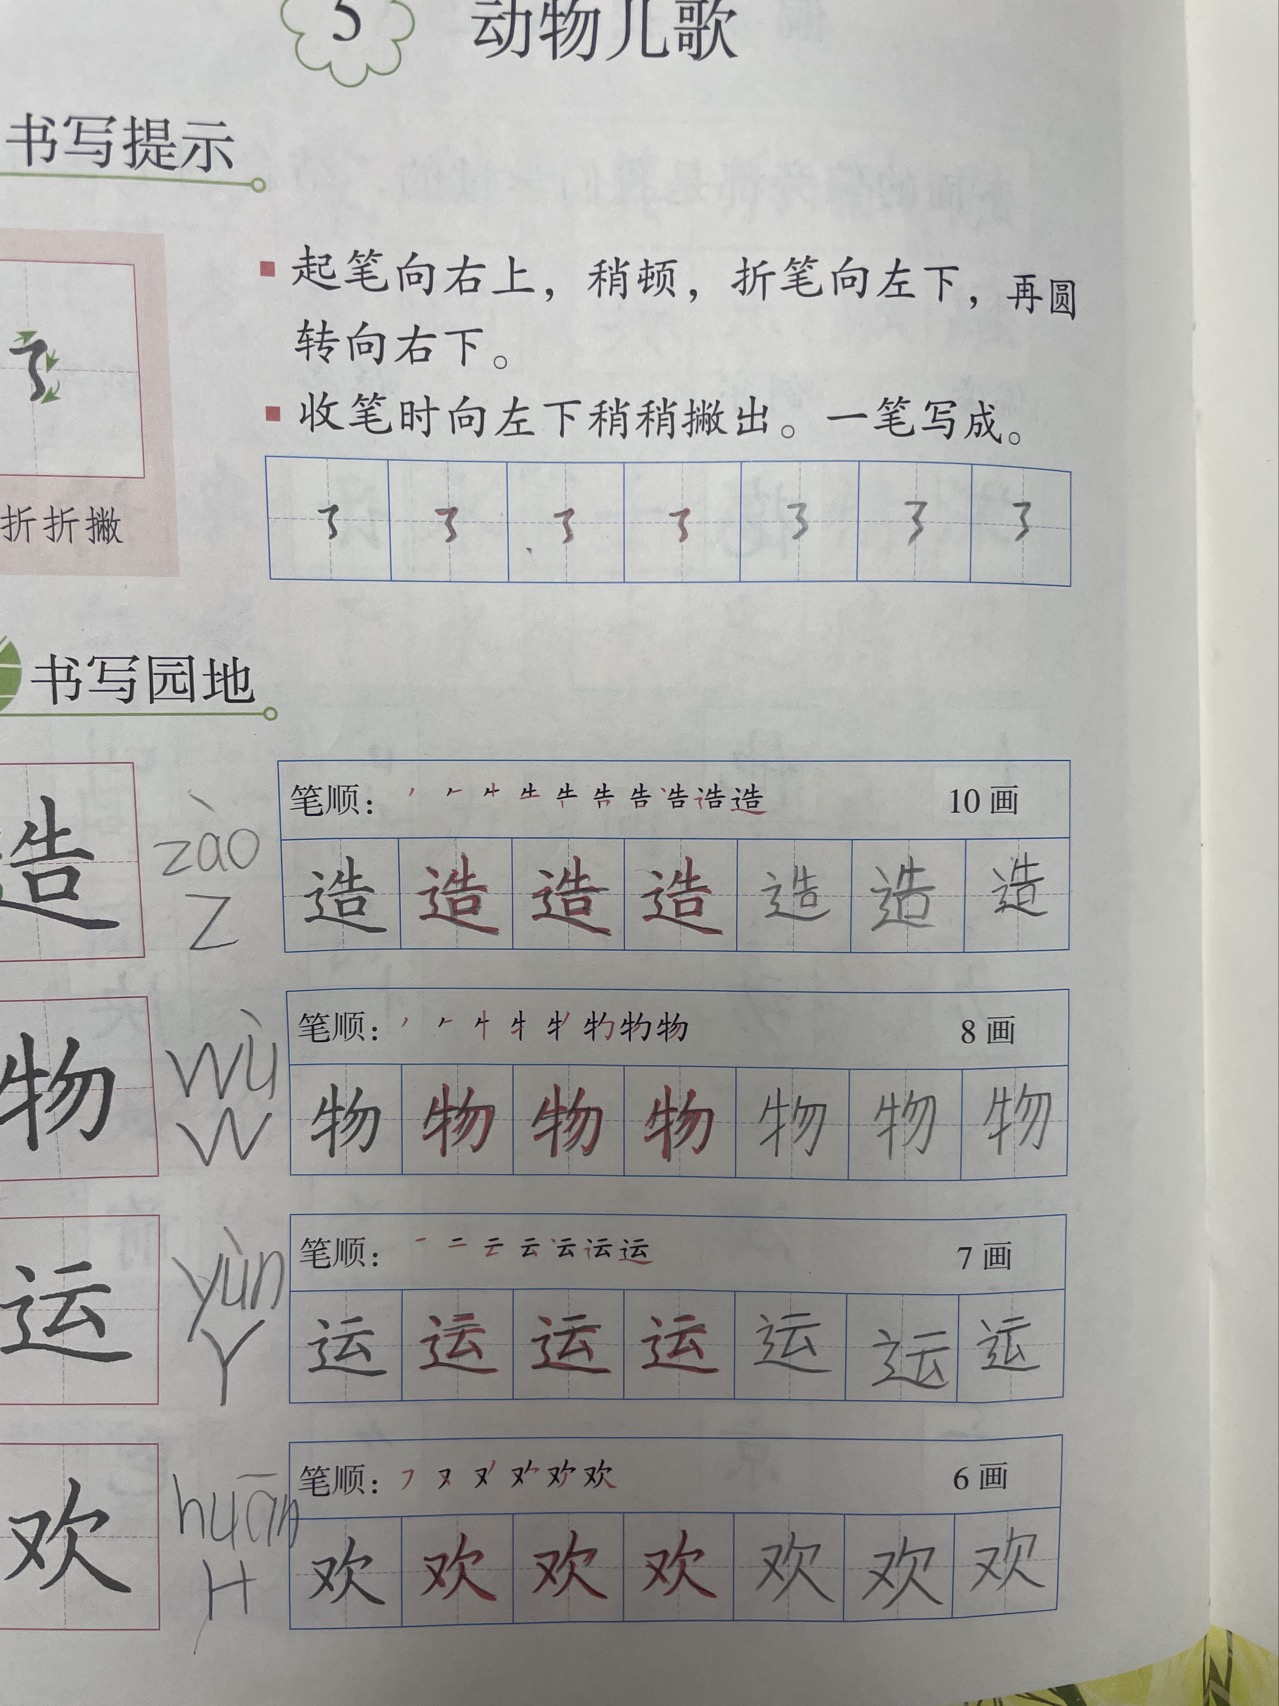 5 动物儿歌
书写提示
起笔向右上，稍顿，折笔向左下，再圆
转向右下。
收笔时向左下稍稍撇出。一笔写成。
折折撇
㇋ ㇋ ㇋ ㇋ ㇋ ㇋ ㇋
书写园地
造 zào Z
笔顺： 造 10画
造 造 造 造 造 造 造
物 wù W
笔顺： 物 8画
物 物 物 物 物 物 物
运 yùn Y
笔顺： 运 7画
运 运 运 运 运 运 运
欢 huān H
笔顺： 欢 6画
欢 欢 欢 欢 欢 欢 欢